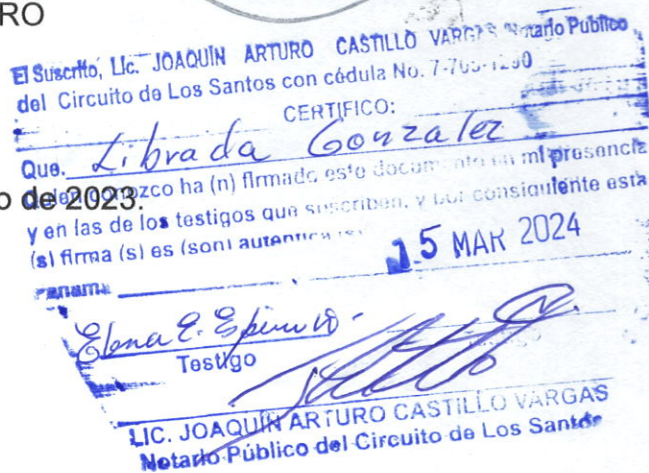 RO
El Suscrito, Lic. JOAQUÍN ARTURO CASTILLO VARGAS Notario Público
del Circuito de Los Santos con cédula No.
CERTIFICO:
Que. Librada Gonzalez
conozco ha (n) firmado este documento en mi presencia
o de 2023.
y en las de los testigos que suscriben, y por consiguiente esta
(s) firma (s) es (son) autentica (s)
Panamá 15 MAR 2024
Elena E.
Testigo
LIC. JOAQUÍN ARTURO CASTILLO VARGAS
Notario Público del Circuito de Los Santos